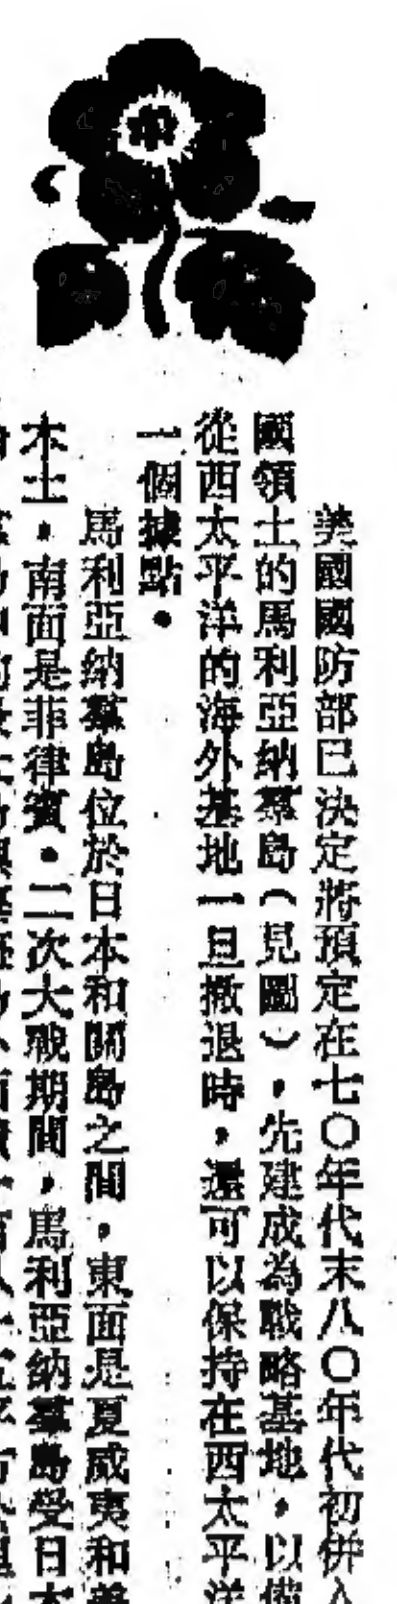 美國國防部已決定將預定在七〇年代末八〇年代初併入
國領土的馬利亞納羣島(見圖),先建成為戰略基地,以備
從西太平洋的海外基地一旦撤退時,還可以保持在西太平洋
一個據點。
馬利亞納羣島位於日本和關島之間,東面是夏威夷和美
本土,南面是菲律賓。二次大戰期間,馬利亞納羣島受日本